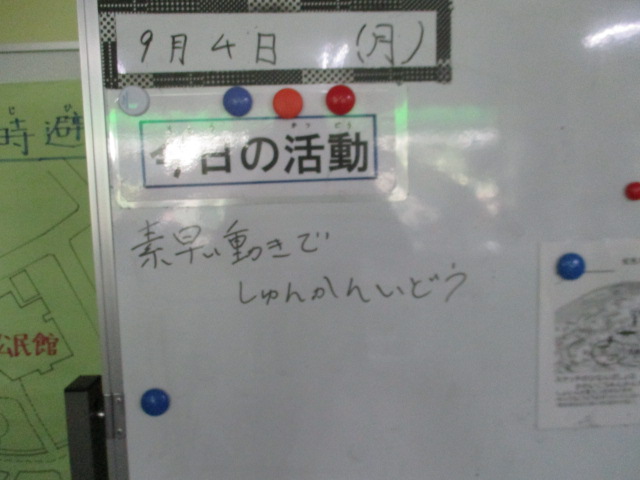 9月4日 (月)
今日の活動
素早い動きで
しゅんかんいどう
時避
民館